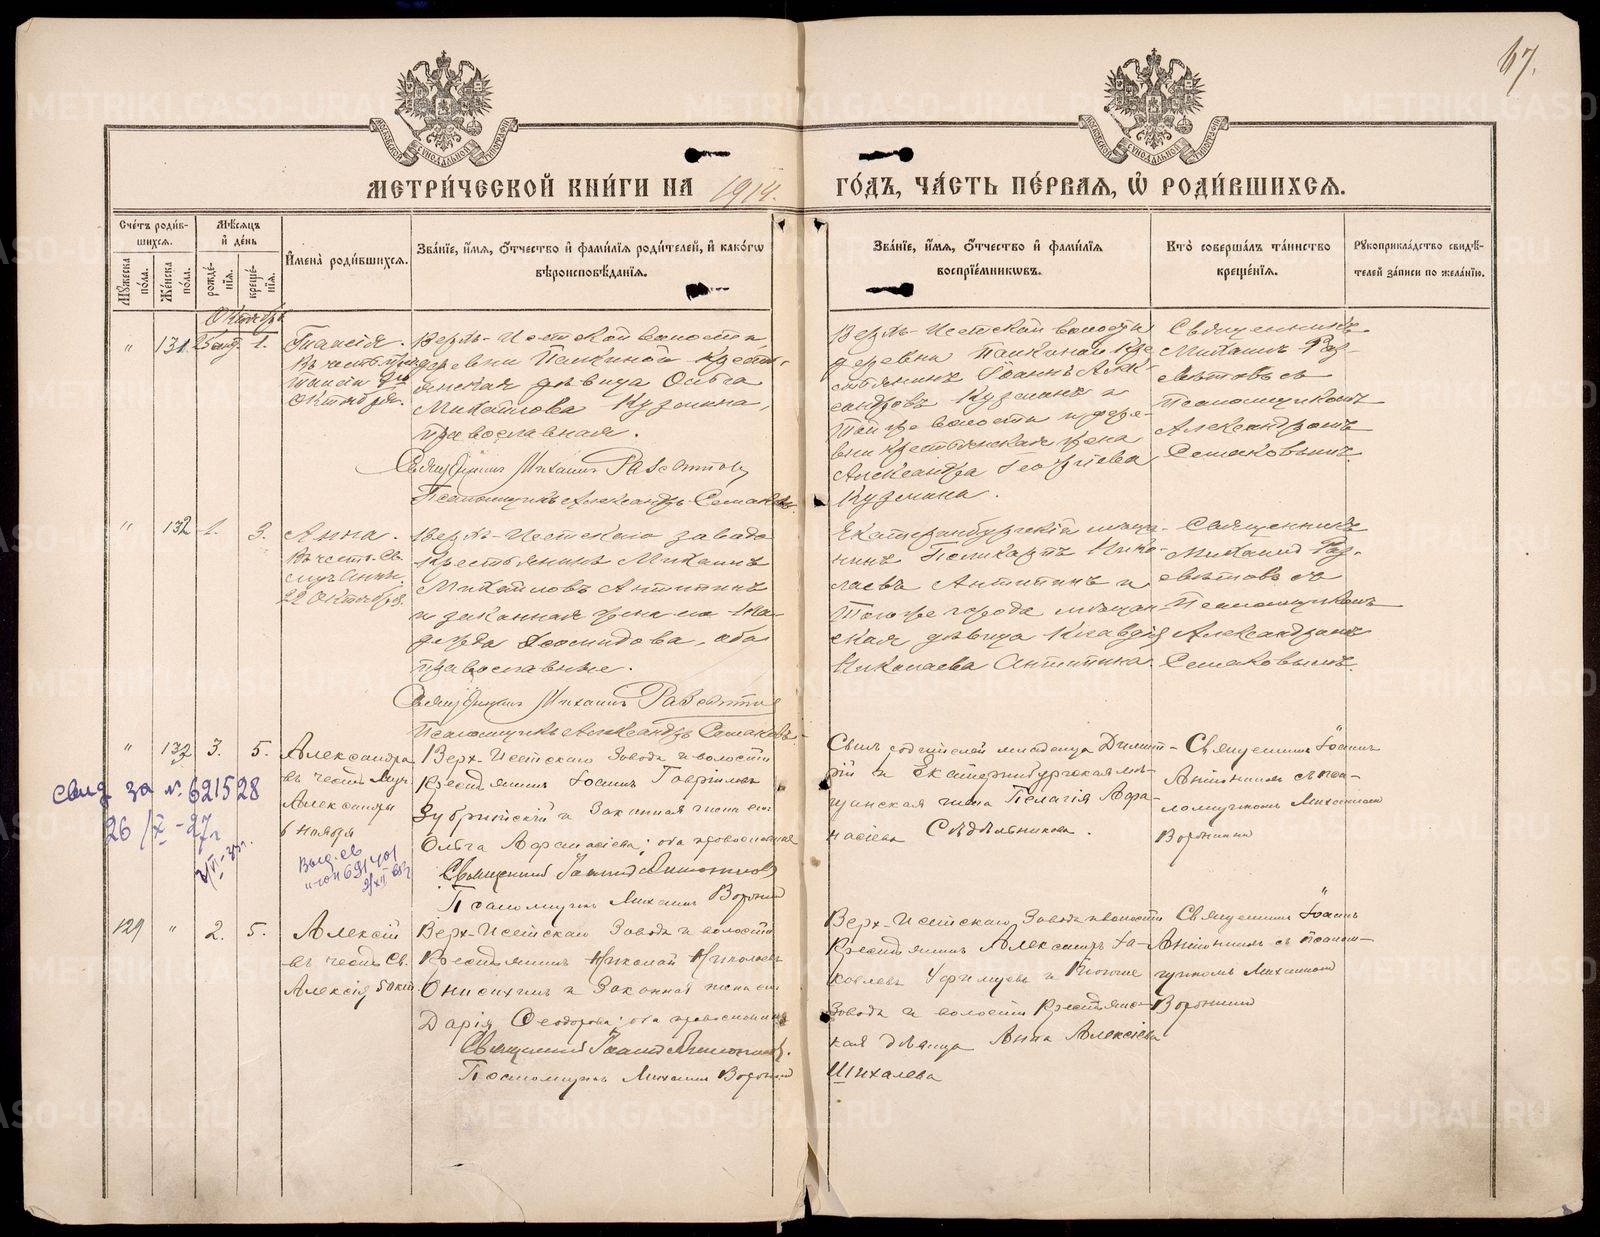 67.
МЕТРИ́ЧЕСКОЙ КНИ́ГИ НА 1914. ГО́ДЪ, ЧА́СТЬ ПЕ́РВАЯ, Ѽ РОДИ́ВШИХСЯ.
Сче́тъ роди́в-
шихся.
Мѣ́сяцъ
и҆ де́нь
Мꙋ́жеска по́ла.
Же́нска по́ла.
рожде́-
нїя.
креще́-
нїя.
И҆мена̀ роди́вшихся.
Зва́нїе, и҆́мя, ѻ҆́тчество и҆ фами́лїя роди́телей, и҆ како́гѡ
вѣроисповѣ́данїя.
Зва́нїе, и҆́мя, ѻ҆́тчество и҆ фами́лїя
воспрїе́мникѡвъ.
Кто̀ соверша́лъ та́инство
креще́нїя.
Рꙋкоприкла́дство свидѣ́-
телей за́писи по жела́нїю.
Октябрь
"
131
25 сент.
1.
Таисія.
Въ честь прп.
Таисіи 8го
Октября.
Верхъ-Исетской волости,
деревни Палкиной кресть-
янская дѣвица Ольга
Михайлова Кузмина,
православная.
Священникъ Михаилъ Разсвѣтовъ
Псаломщикъ Александръ Семаковъ.
Верхъ-Исетской волости
деревни Палкиной кре-
стьянинъ Іоаннъ Алек-
сандровъ Кузминъ и
той же волости и дере-
вни крестьянская жена
Александра Георгіева
Кузмина.
Священникъ
Михаилъ Раз-
свѣтовъ съ
Псаломщикомъ
Александромъ
Семаковымъ.
"
132
1.
3.
Анна.
Въ честь Св.
муч. Анны
22 Октября.
Верхъ-Исетскаго завода
крестьянинъ Михаилъ
Михайловъ Антипинъ
и законная жена его На
дежда Леонидова, оба
православные.
Священникъ Михаилъ Разсвѣтовъ
Псаломщикъ Александръ Семаковъ.
Екатеринбургскій мѣща-
нинъ Поликарпъ Нико-
лаевъ Антипинъ и
того же города мѣщан
ская дѣвица Клавдія
Николаева Антипина.
Священникъ
Михаилъ Раз-
свѣтовъ съ
Псаломщикомъ
Александромъ
Семаковымъ.
"
133
3.
5.
Александра
въ честь муч.
Александры
6 ноября
Верх-Исетскаго Завода и волости
Крестьянинъ Іоаннъ Гавріиловъ
Зубрицкій и Законная жена его
Ольга Афанасіева; оба православные
Священникъ Іоаннъ Анѳиногеновъ
Псаломщикъ Михаилъ Воронинъ
Сынъ родителей младенца Димит-
рій и Екатеринбургская мѣ-
щанская жена Пелагія Афа-
насіева Сѣдѣльникова.
Священникъ Іоаннъ
съ пса-
ломщикомъ Михаиломъ
Воронинымъ
свид за №. 621528
26/X-27г
Выд. св
129
"
2.
5.
Алексій
въ честь Св.
Алексія 5 окт.
Верх-Исетскаго Завода и волости
Крестьянинъ Николай Николаевъ
Онисихинъ и Законная жена его
Дарія Ѳеодорова; оба православные
Священникъ Іоаннъ
Псаломщикъ Михаилъ Воронинъ
Верх-Исетскаго Завода и волости
Крестьянинъ Александръ Іа-
ковлевъ Уфимцевъ и того же
Завода и волости Крестьянс-
кая дѣвица Анна Алексіева
Шихалева
Священникъ Іоаннъ
съ псалом-
щикомъ Михаиломъ
Воронинымъ
METRIKI.GASO-URAL.RU